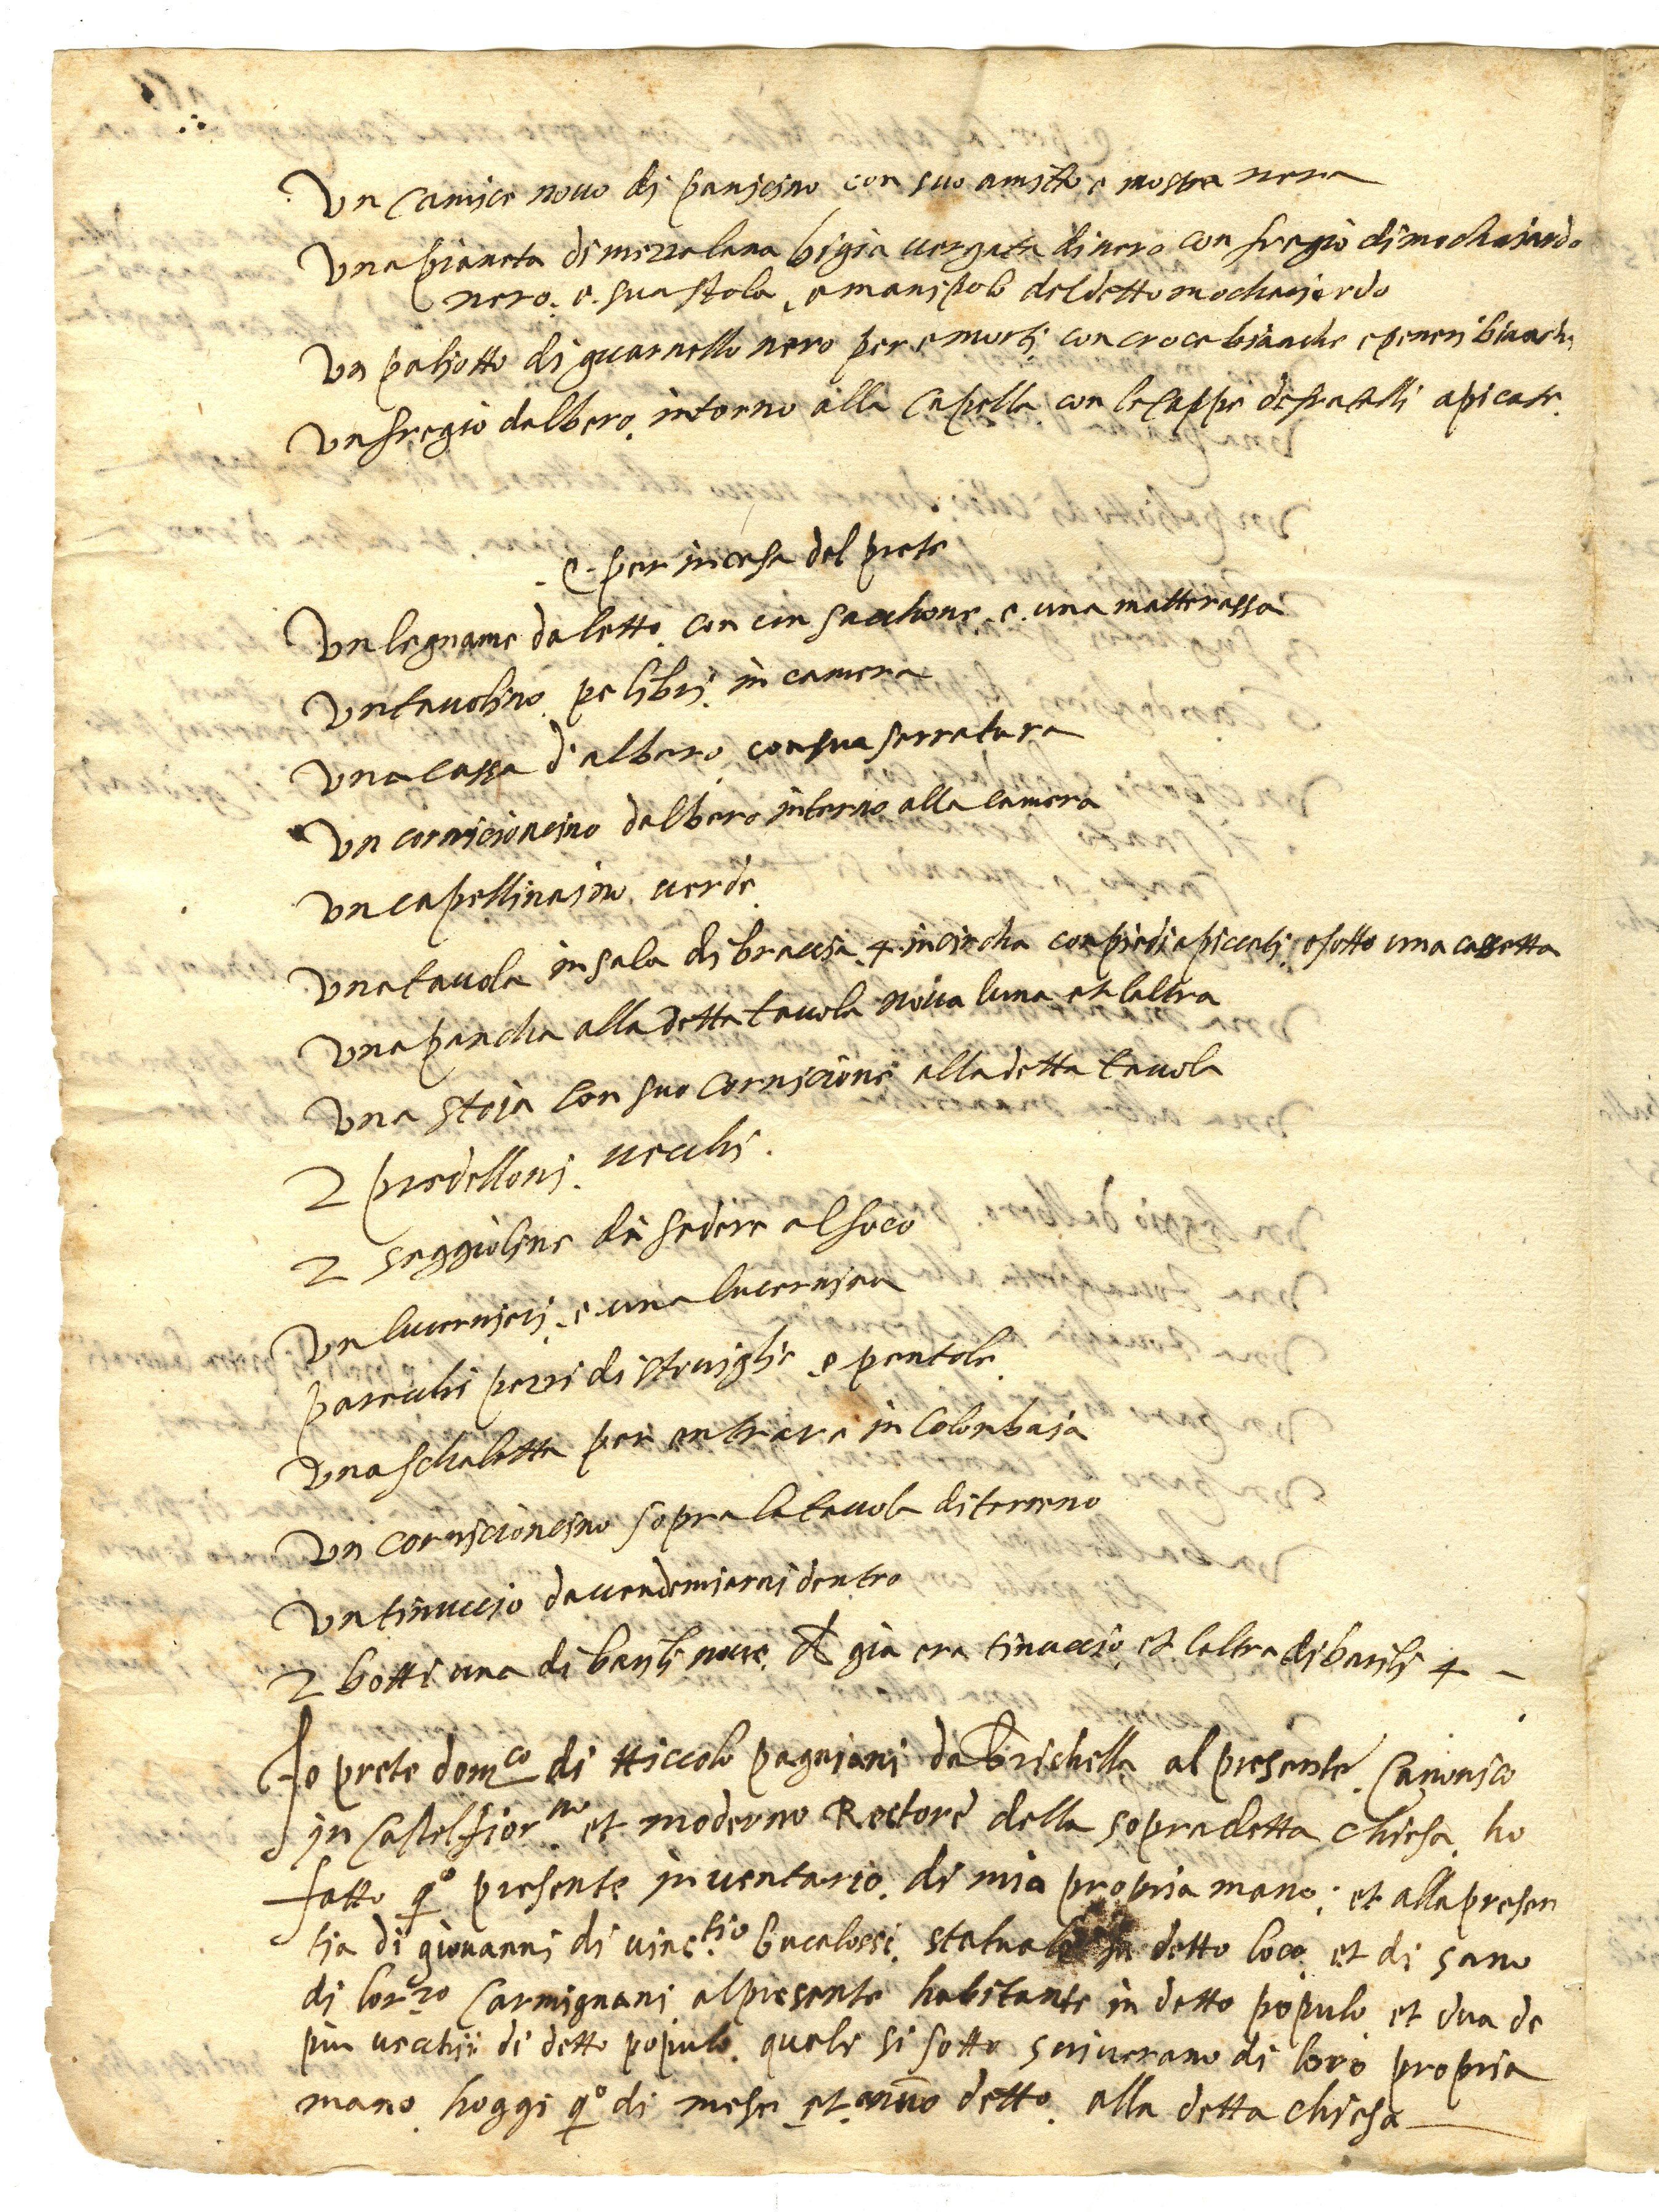 Un camice nouo di panicino con suo amitto e mostra nera
Una pianeta di mezzalana bigia uergata di nero con fregio di mochaiardo
nero. e. sua stola, e manipolo del detto mochaiardo
Un paliotto di guarnello nero per e morti. con croce bianche e peneri bianchi
Un fregio dalbero. intorno alla Capella con le cappe de fratelli apicate.
.e. per in casa del prete
Un legname da letto. con un sacchone. e. una matterassa
Un tauolino. pe libri. in camera
Una cassa d'albero. con sua serratura
Un cornicioncino dalbero intorno alla camera
Un capellinaino. uerde.
Una tauola in sala di braccia. 4. incircha con piedi apiccati. e sotto una cassetta
Una pancha alla detta tauola noua luna et laltra
Una stoia con suo cornicione alla detta tauola
2 predelloni. uecchi.
2 seggioline da sedere al foco
Un lucernieri. e. una lucernina
parecchi pezzi di stouiglie. e pentole.
Una schaletta per entrare in Colonbaia
Un cornicioncino sopra la tauola di terreno
Un tinuccio da uendemiarui dentro
2 botti una di barili noue. che gia era tinuccio. et laltra di barili 4 -
Io prete domco di Niccolo pagniani da Brichella al presente. Canonico
in Castelfiorno et moderno Rectore della sopradetta chiesa. ho
fatto qo presente inuentario. di mia propria mano; et alla presen
tia di giouanni di uincetio bucalossi. detto loco. et di sano
di lorzo Carmignani al presente habitante in detto populo et dua de
piu uecchii di detto popiulo. quele si sotto scriuerano di loro propria
mano. hoggi qo di mese et anno detto. alla detta chiesa